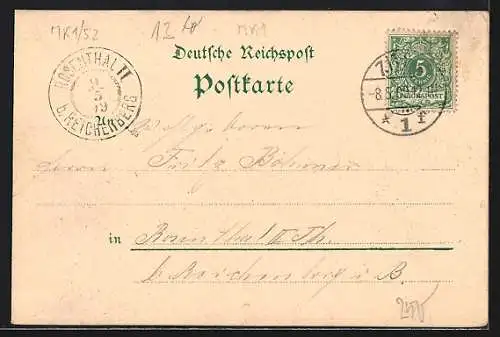 MK1/52
12 MK1
Deutsche Reichspost
Postkarte
ROSENTHAL II
b. REICHENBERG
9
5
5
REICHSPOST
-8.5.
* 1 f
Wohlgeboren
Herrn Fritz Böhme
in Rosenthal II Th.
b. Reichenberg i. B.
250